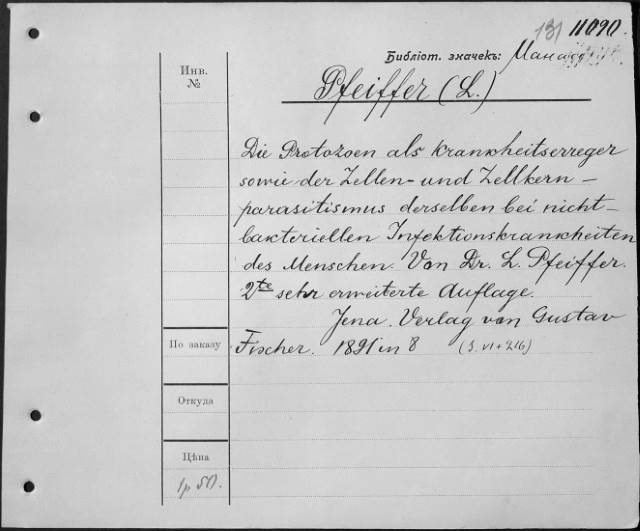 131 11090.
Библіот. значекъ:
Инв.
№
Pfeiffer (L.)
Die Protozoen als Krankheitserreger
sowie der Zellen- und Zellkern-
parasitismus derselben bei nicht-
bakteriellen Infektionskrankheiten
des Menschen. Von Dr. L. Pfeiffer.
2te sehr erweiterte Auflage.
Jena. Verlag von Gustav
По заказу
Fischer. 1891 in 8 (S. VI + 216)
Откуда
Цѣна
1р 50.